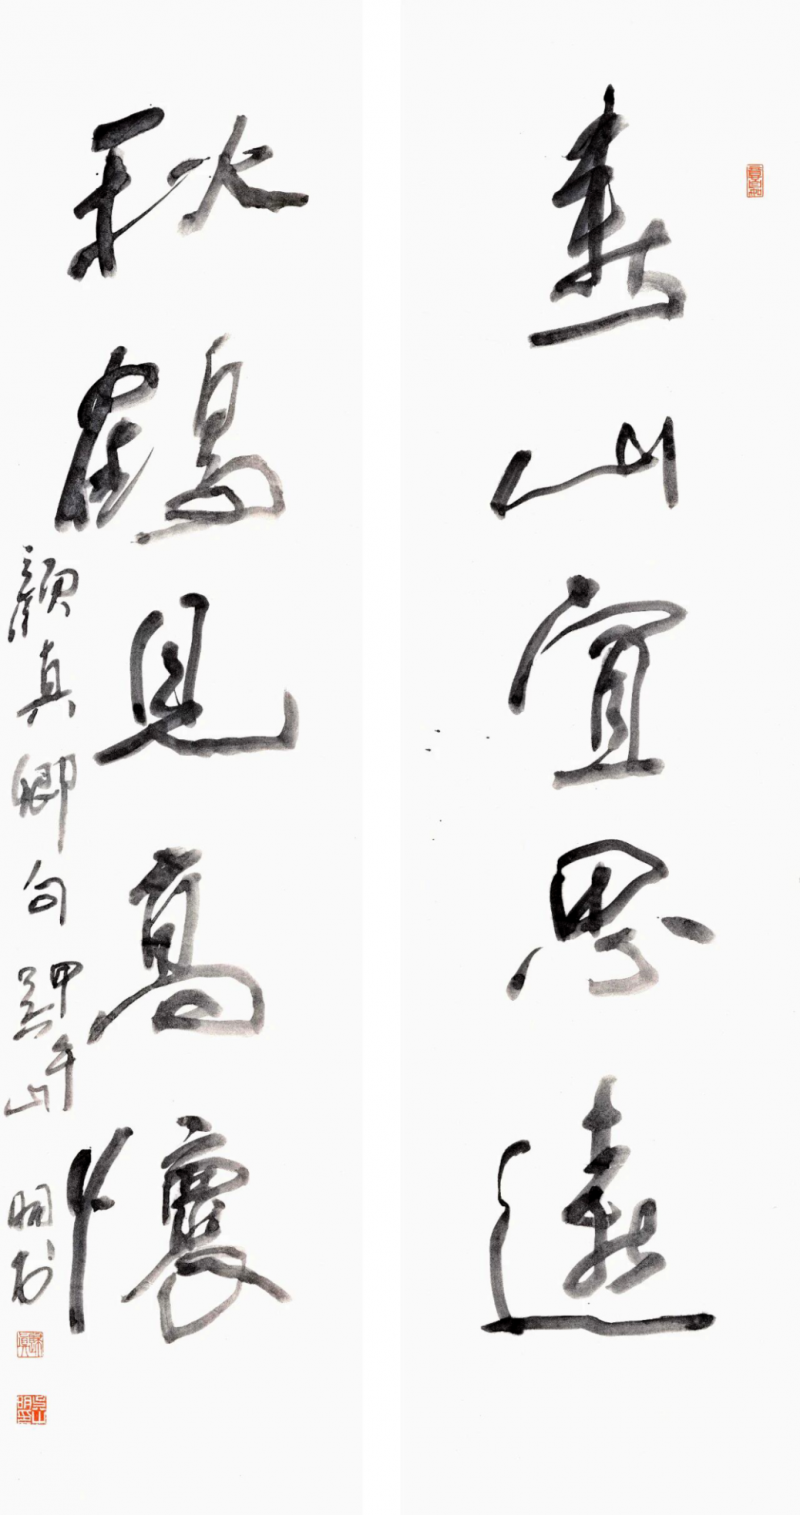 山宜思遠
秋鶴見高懷
顏真卿句
甲午
吳山明書